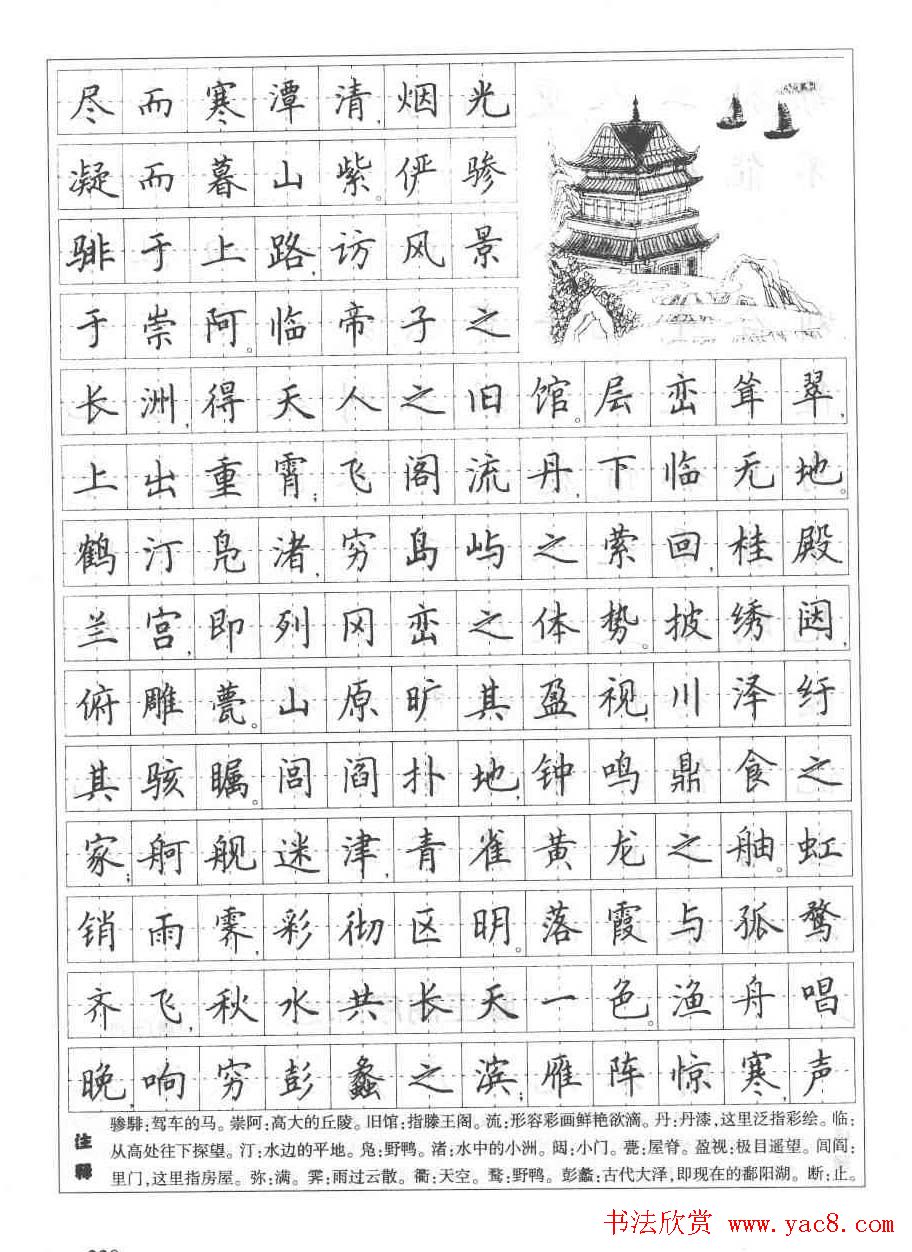 尽而寒潭清,烟光
凝而暮山紫。俨骖
騑于上路,访风景
于崇阿。临帝子之
长洲,得天人之旧馆。层峦耸翠,
上出重霄;飞阁流丹,下临无地。
鹤汀凫渚,穷岛屿之萦回,桂殿
兰宫,即列冈峦之体势。披绣闼,
俯雕甍。山原旷其盈视,川泽纡
其骇瞩。闾阎扑地,钟鸣鼎食之
家;舸舰迷津,青雀黄龙之舳。虹
销雨霁,彩彻区明。落霞与孤鹜
齐飞,秋水共长天一色。渔舟唱
晚,响穷彭蠡之滨;雁阵惊寒,声
注释
骖騑:驾车的马。崇阿:高大的丘陵。旧馆:指滕王阁。流:形容彩画鲜艳欲滴。丹:丹漆,这里泛指彩绘。临:
从高处往下探望。汀:水边的平地。凫:野鸭。渚:水中的小洲。闼:小门。甍:屋脊。盈视:极目遥望。闾阎:
里门,这里指房屋。弥:满。霁:雨过云散。衢:天空。鹜:野鸭。彭蠡:古代大泽,即现在的鄱阳湖。断:止。
书法欣赏 www.yac8.com